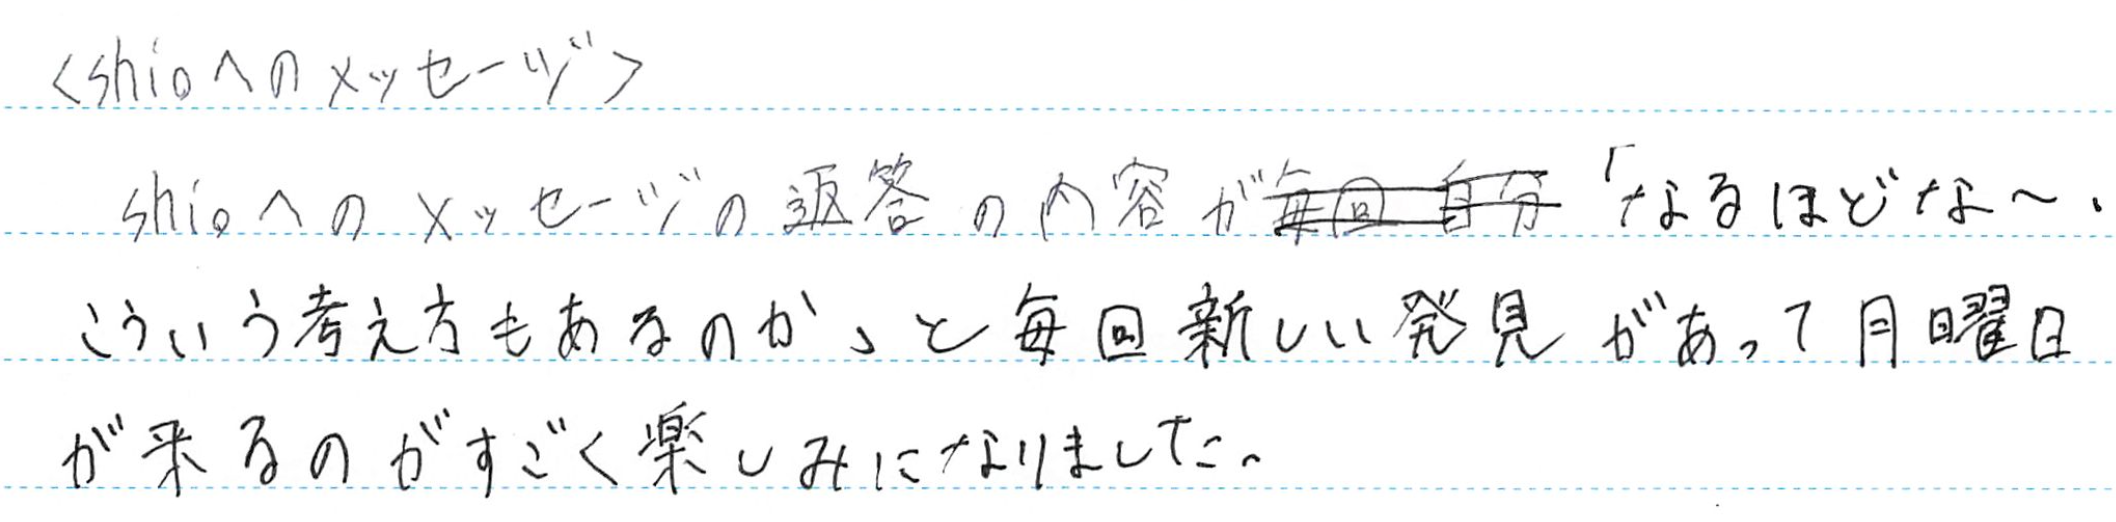 <shioへのメッセージ>
shioへのメッセージの返答の内容が毎回 自分「なるほどな〜、
こういう考え方もあるのか」と毎回新しい発見があって月曜日
が来るのがすごく楽しみになりました。